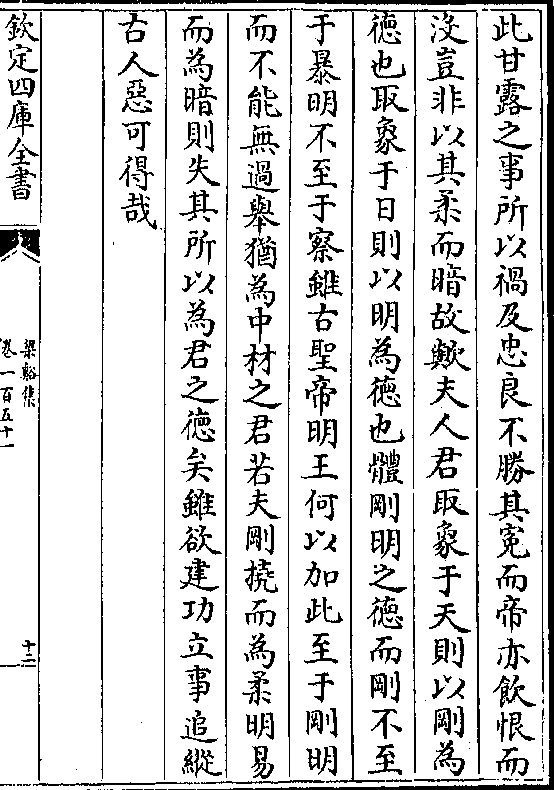 此甘露之事所以禍及忠良不勝其寃而帝亦飲恨而
沒豈非以其柔而暗故歟夫人君取象于天則以剛為
徳也取象于日則以明為徳也體剛明之徳而剛不至
于暴明不至于察雖古聖帝明王何以加此至于剛明
而不能無過舉猶為中材之君若夫剛撓而為柔明易
而為暗則失其所以為君之徳矣雖欲建功立事追縱
古人惡可得哉
欽定四庫全書
梁谿集
卷一百五十一
十二